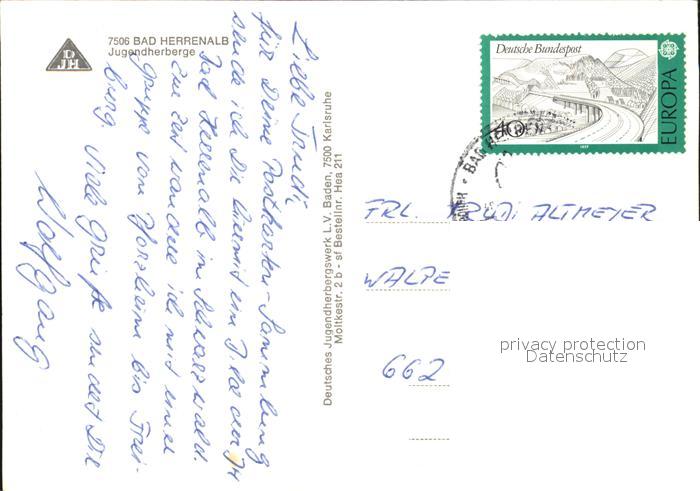 7506 BAD HERRENALB
Jugendherberge
DJH
Liebe Trudi,
für Deine Postkarten-Sammlung
sende ich Dir hiermit ein Bild der JH
Bad Herrenalb im Schwarzwald.
Zur Zeit wandere ich mit einer
Gruppe von Pforzheim bis Frei-
burg. Viele Grüße sendet Dir
Wolfgang
Deutsches Jugendherbergswerk L.V. Baden, 7500 Karlsruhe
Moltkestr. 2 b - sf Bestellnr. Hea 211
Deutsche Bundespost
EUROPA
1977
BAD HERRENALB
FRL. TRUDI ALTMEYER
WALPE
662
privacy protection
Datenschutz